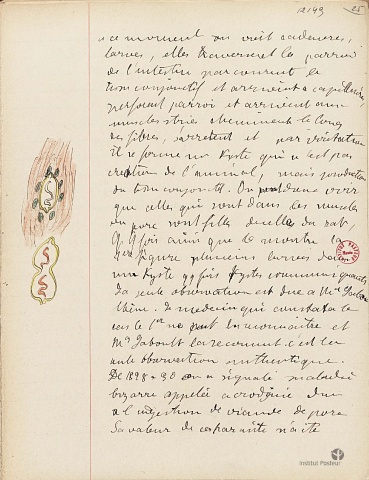 12149 25
à ce moment on voit cadavres,
larves, elles traversent la parroi
de l'intestin parcourent le
tissu conjonctif et arrivent à capillaires,
perforent parroi et arrivent aux
muscles striés cheminent le long
des fibres, s'arrêtent et par irritation
il se forme un Kyste qui n'est pas
création de l'animal, mais production
du tissu conjonctif. On peut donc voir
que celles qui sont dans les muscles
du porc sont filles de celles du rat,
Qq fois ainsi que le montre la
figure plusieurs larves dans
un Kyste qq fois Kystes communiquants
la seule observation est due à
le medecin qui constata le
cas le 1er ne put la connaitre et
Mr la reconnut. c'est la
seule observation authentique.
De 1828 à 30 on a signalé maladie
bizarre appelée acrodynie due
à l'ingestion de viande de porc
Sa valeur de ce parasite n'a été
Institut Pasteur